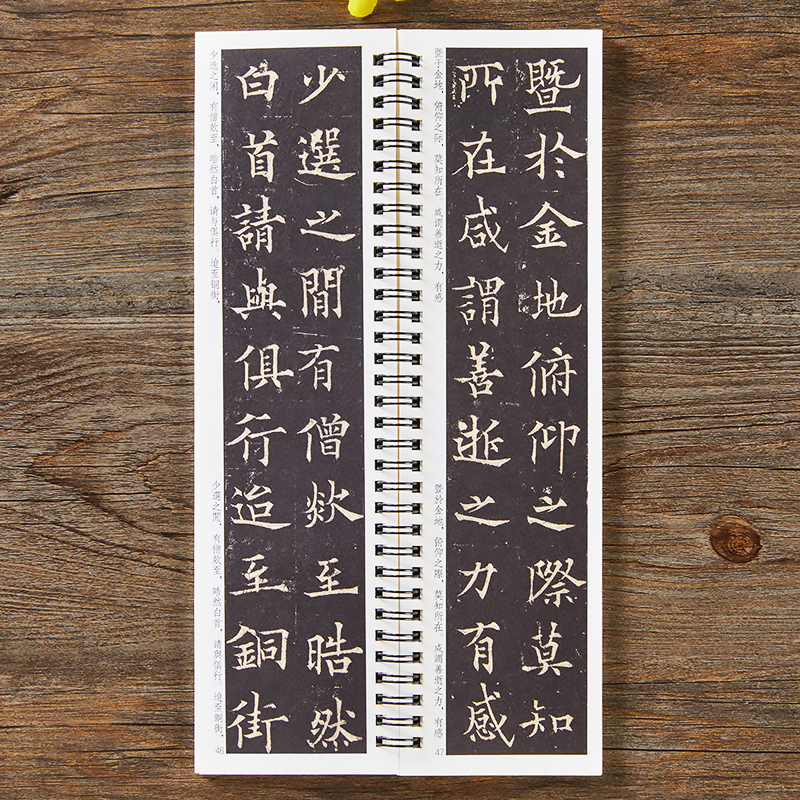 少選之間有僧欻至皓然
白首請與俱行迨至銅街
少选之间，有僧欻至，皓然白首，请与俱行。迨至铜街，
少選之間，有僧欻至，皓然白首，請與俱行。迨至銅街，
46
暨於金地俯仰之際莫知
所在咸謂善逝之力有感
暨于金地，俯仰之际，莫知所在。咸谓善逝之力，有感
暨於金地，俯仰之際，莫知所在。咸謂善逝之力，有感
47